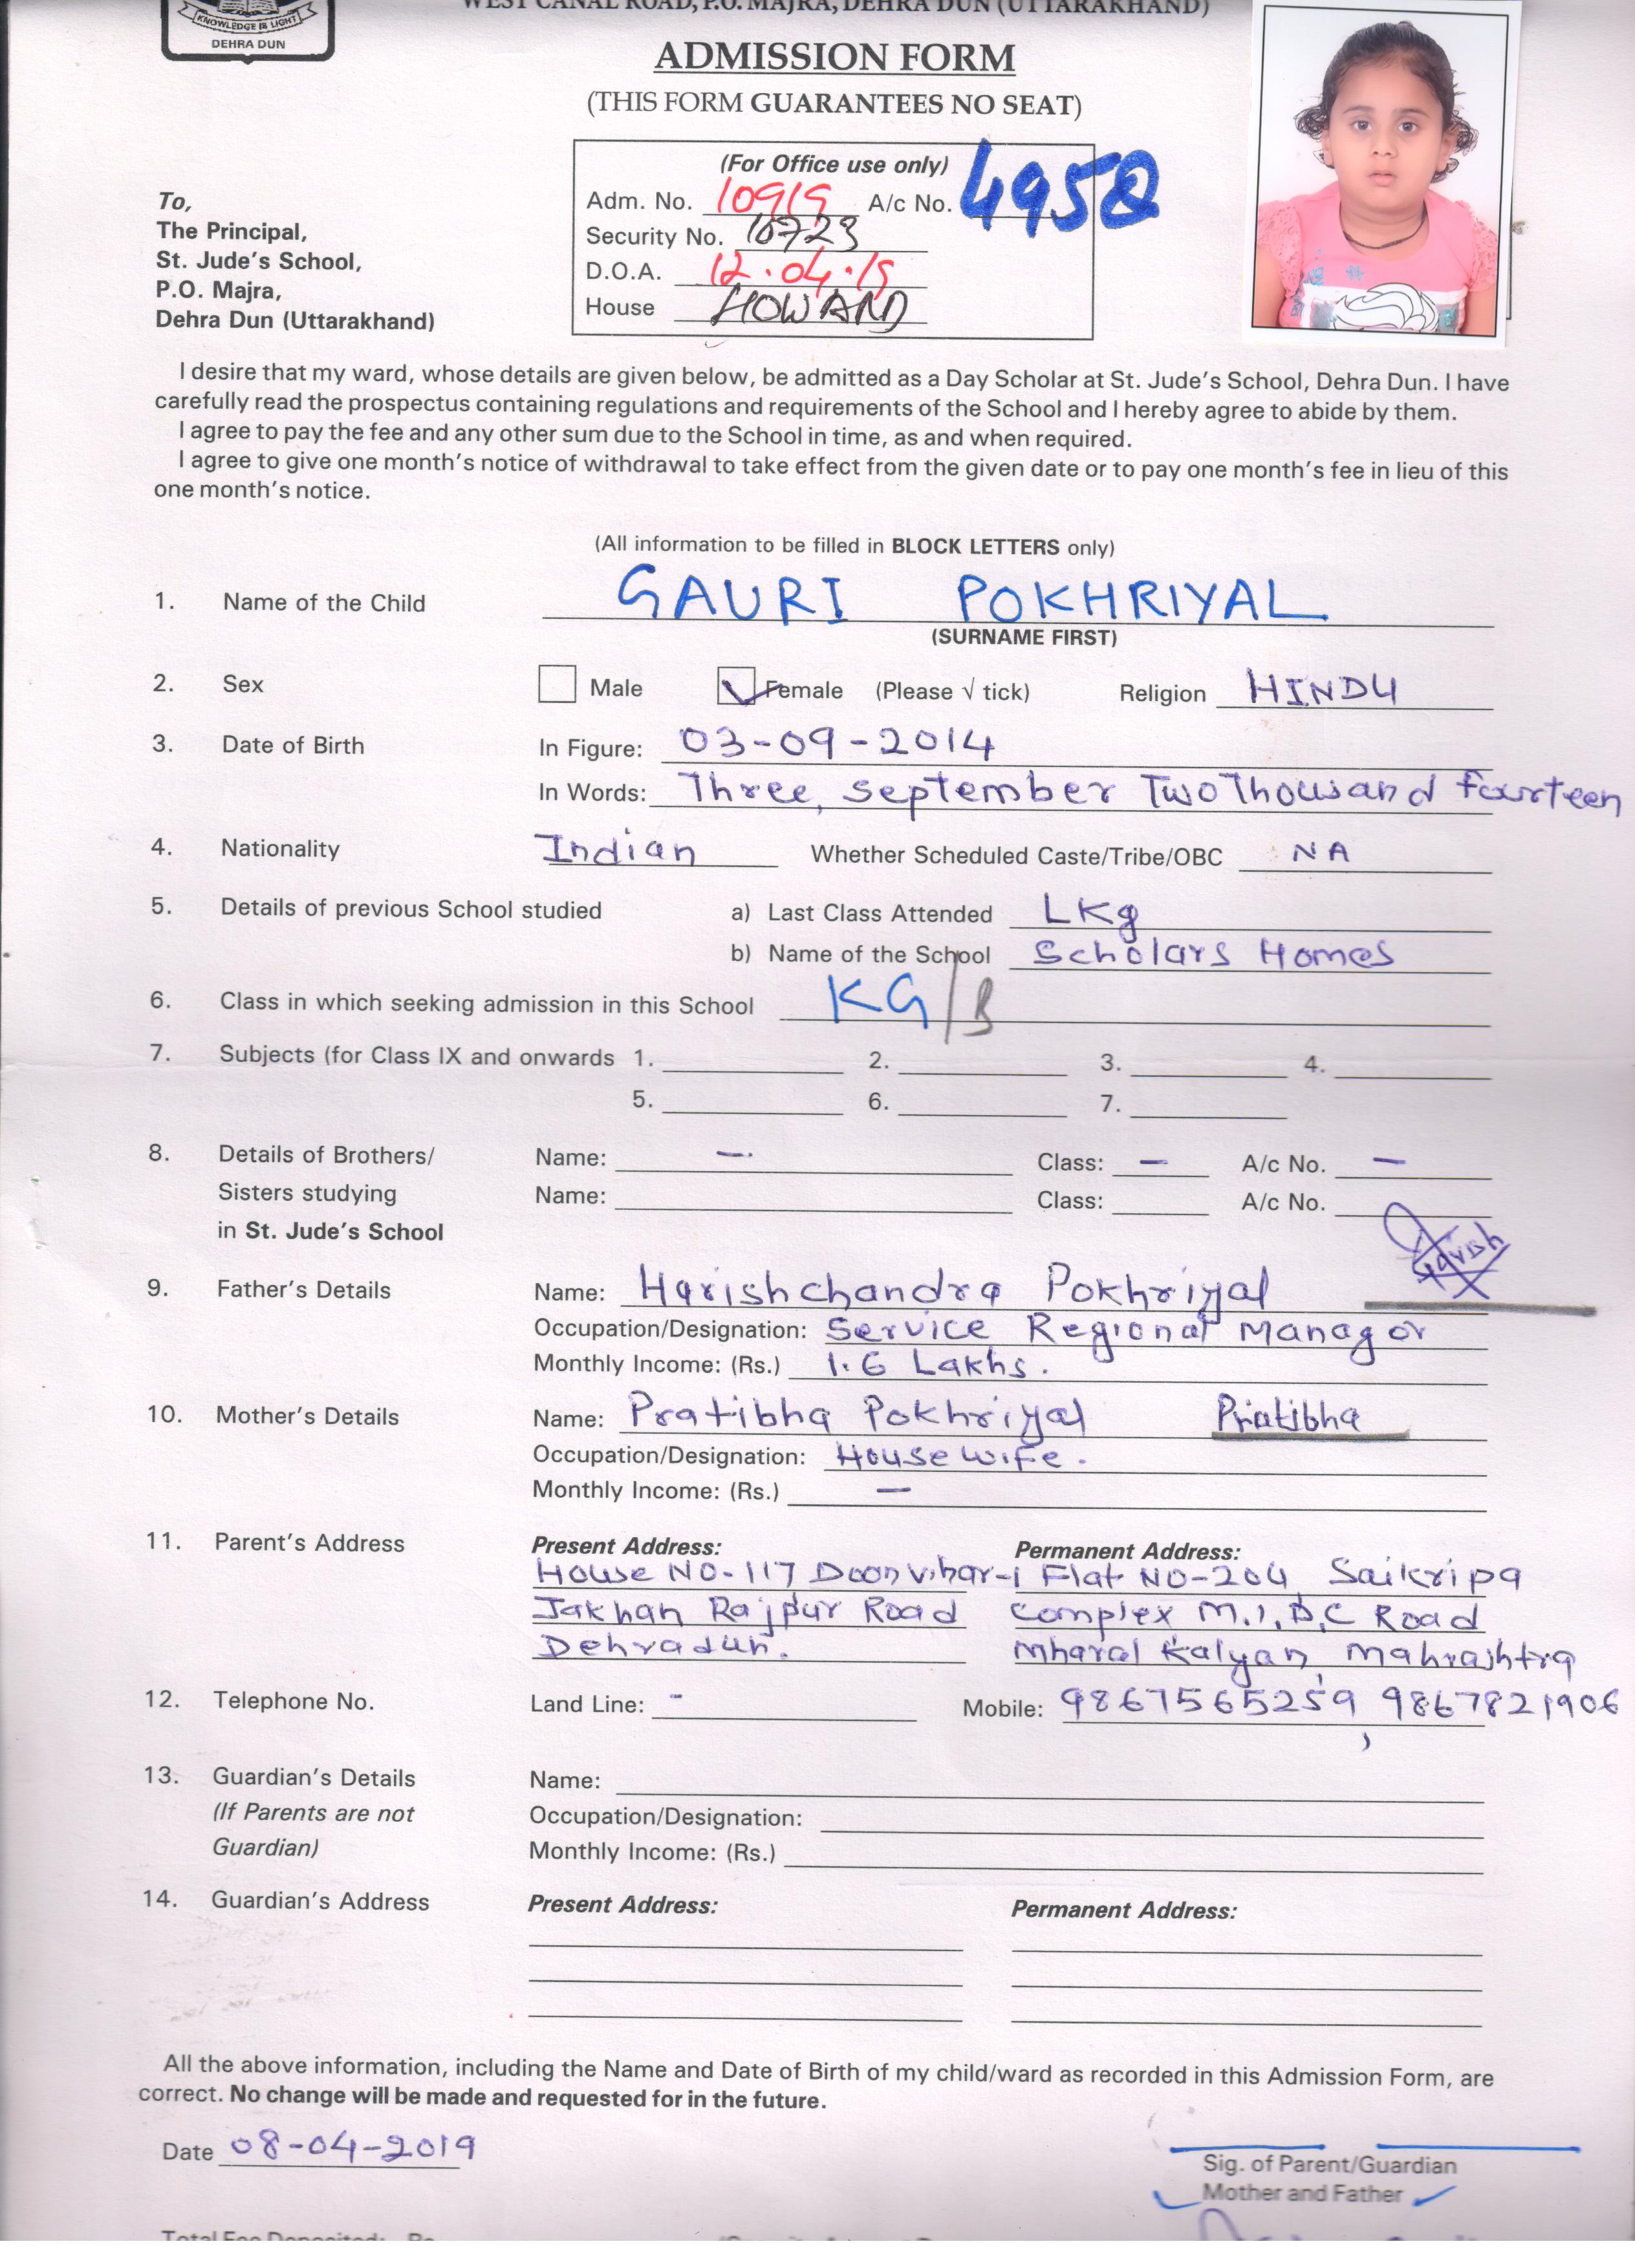 WEST CANAL ROAD, P.O. MAJRA, DEHRA DUN (UTTARAKHAND)
KNOWLEDGE IS LIGHT
DEHRA DUN
ADMISSION FORM
(THIS FORM GUARANTEES NO SEAT)
(For Office use only)
Adm. No. 10919 A/c No. 4958
Security No. 10723
D.O.A. 12.04.19
House HOWARD
To,
The Principal,
St. Jude's School,
P.O. Majra,
Dehra Dun (Uttarakhand)
I desire that my ward, whose details are given below, be admitted as a Day Scholar at St. Jude's School, Dehra Dun. I have
carefully read the prospectus containing regulations and requirements of the School and I hereby agree to abide by them.
I agree to pay the fee and any other sum due to the School in time, as and when required.
I agree to give one month's notice of withdrawal to take effect from the given date or to pay one month's fee in lieu of this
one month's notice.
(All information to be filled in BLOCK LETTERS only)
1. Name of the Child GAURI POKHRIYAL
(SURNAME FIRST)
2. Sex Male Female (Please √ tick) Religion HINDU
3. Date of Birth In Figure: 03-09-2014
In Words: Three, September Two Thousand Fourteen
4. Nationality Indian Whether Scheduled Caste/Tribe/OBC NA
5. Details of previous School studied a) Last Class Attended LKg
b) Name of the School Scholars Homes
6. Class in which seeking admission in this School KG/B
7. Subjects (for Class IX and onwards 1. 2. 3. 4.
5. 6. 7.
8. Details of Brothers/ Name: – Class: – A/c No. –
Sisters studying Name: Class: A/c No.
in St. Jude's School
9. Father's Details Name: Harishchandra Pokhriyal Harish
Occupation/Designation: Service Regional Managor
Monthly Income: (Rs.) 1.6 Lakhs.
10. Mother's Details Name: Pratibha Pokhriyal Pratibha
Occupation/Designation: House wife.
Monthly Income: (Rs.) –
11. Parent's Address Present Address: Permanent Address:
House NO-117 Doon vihar-1 Flat NO-204, Saikripa
Jakhan Rajpur Road Complex M.I.D.C Road
Dehradun. Mharal Kalyan, Mahrashtra
12. Telephone No. Land Line: - Mobile: 9867565259, 9867821906
13. Guardian's Details Name:
(If Parents are not Occupation/Designation:
Guardian) Monthly Income: (Rs.)
14. Guardian's Address Present Address: Permanent Address:
All the above information, including the Name and Date of Birth of my child/ward as recorded in this Admission Form, are
correct. No change will be made and requested for in the future.
Date 08-04-2019
Sig. of Parent/Guardian
Mother and Father
Total Fee Deposited: Rs.